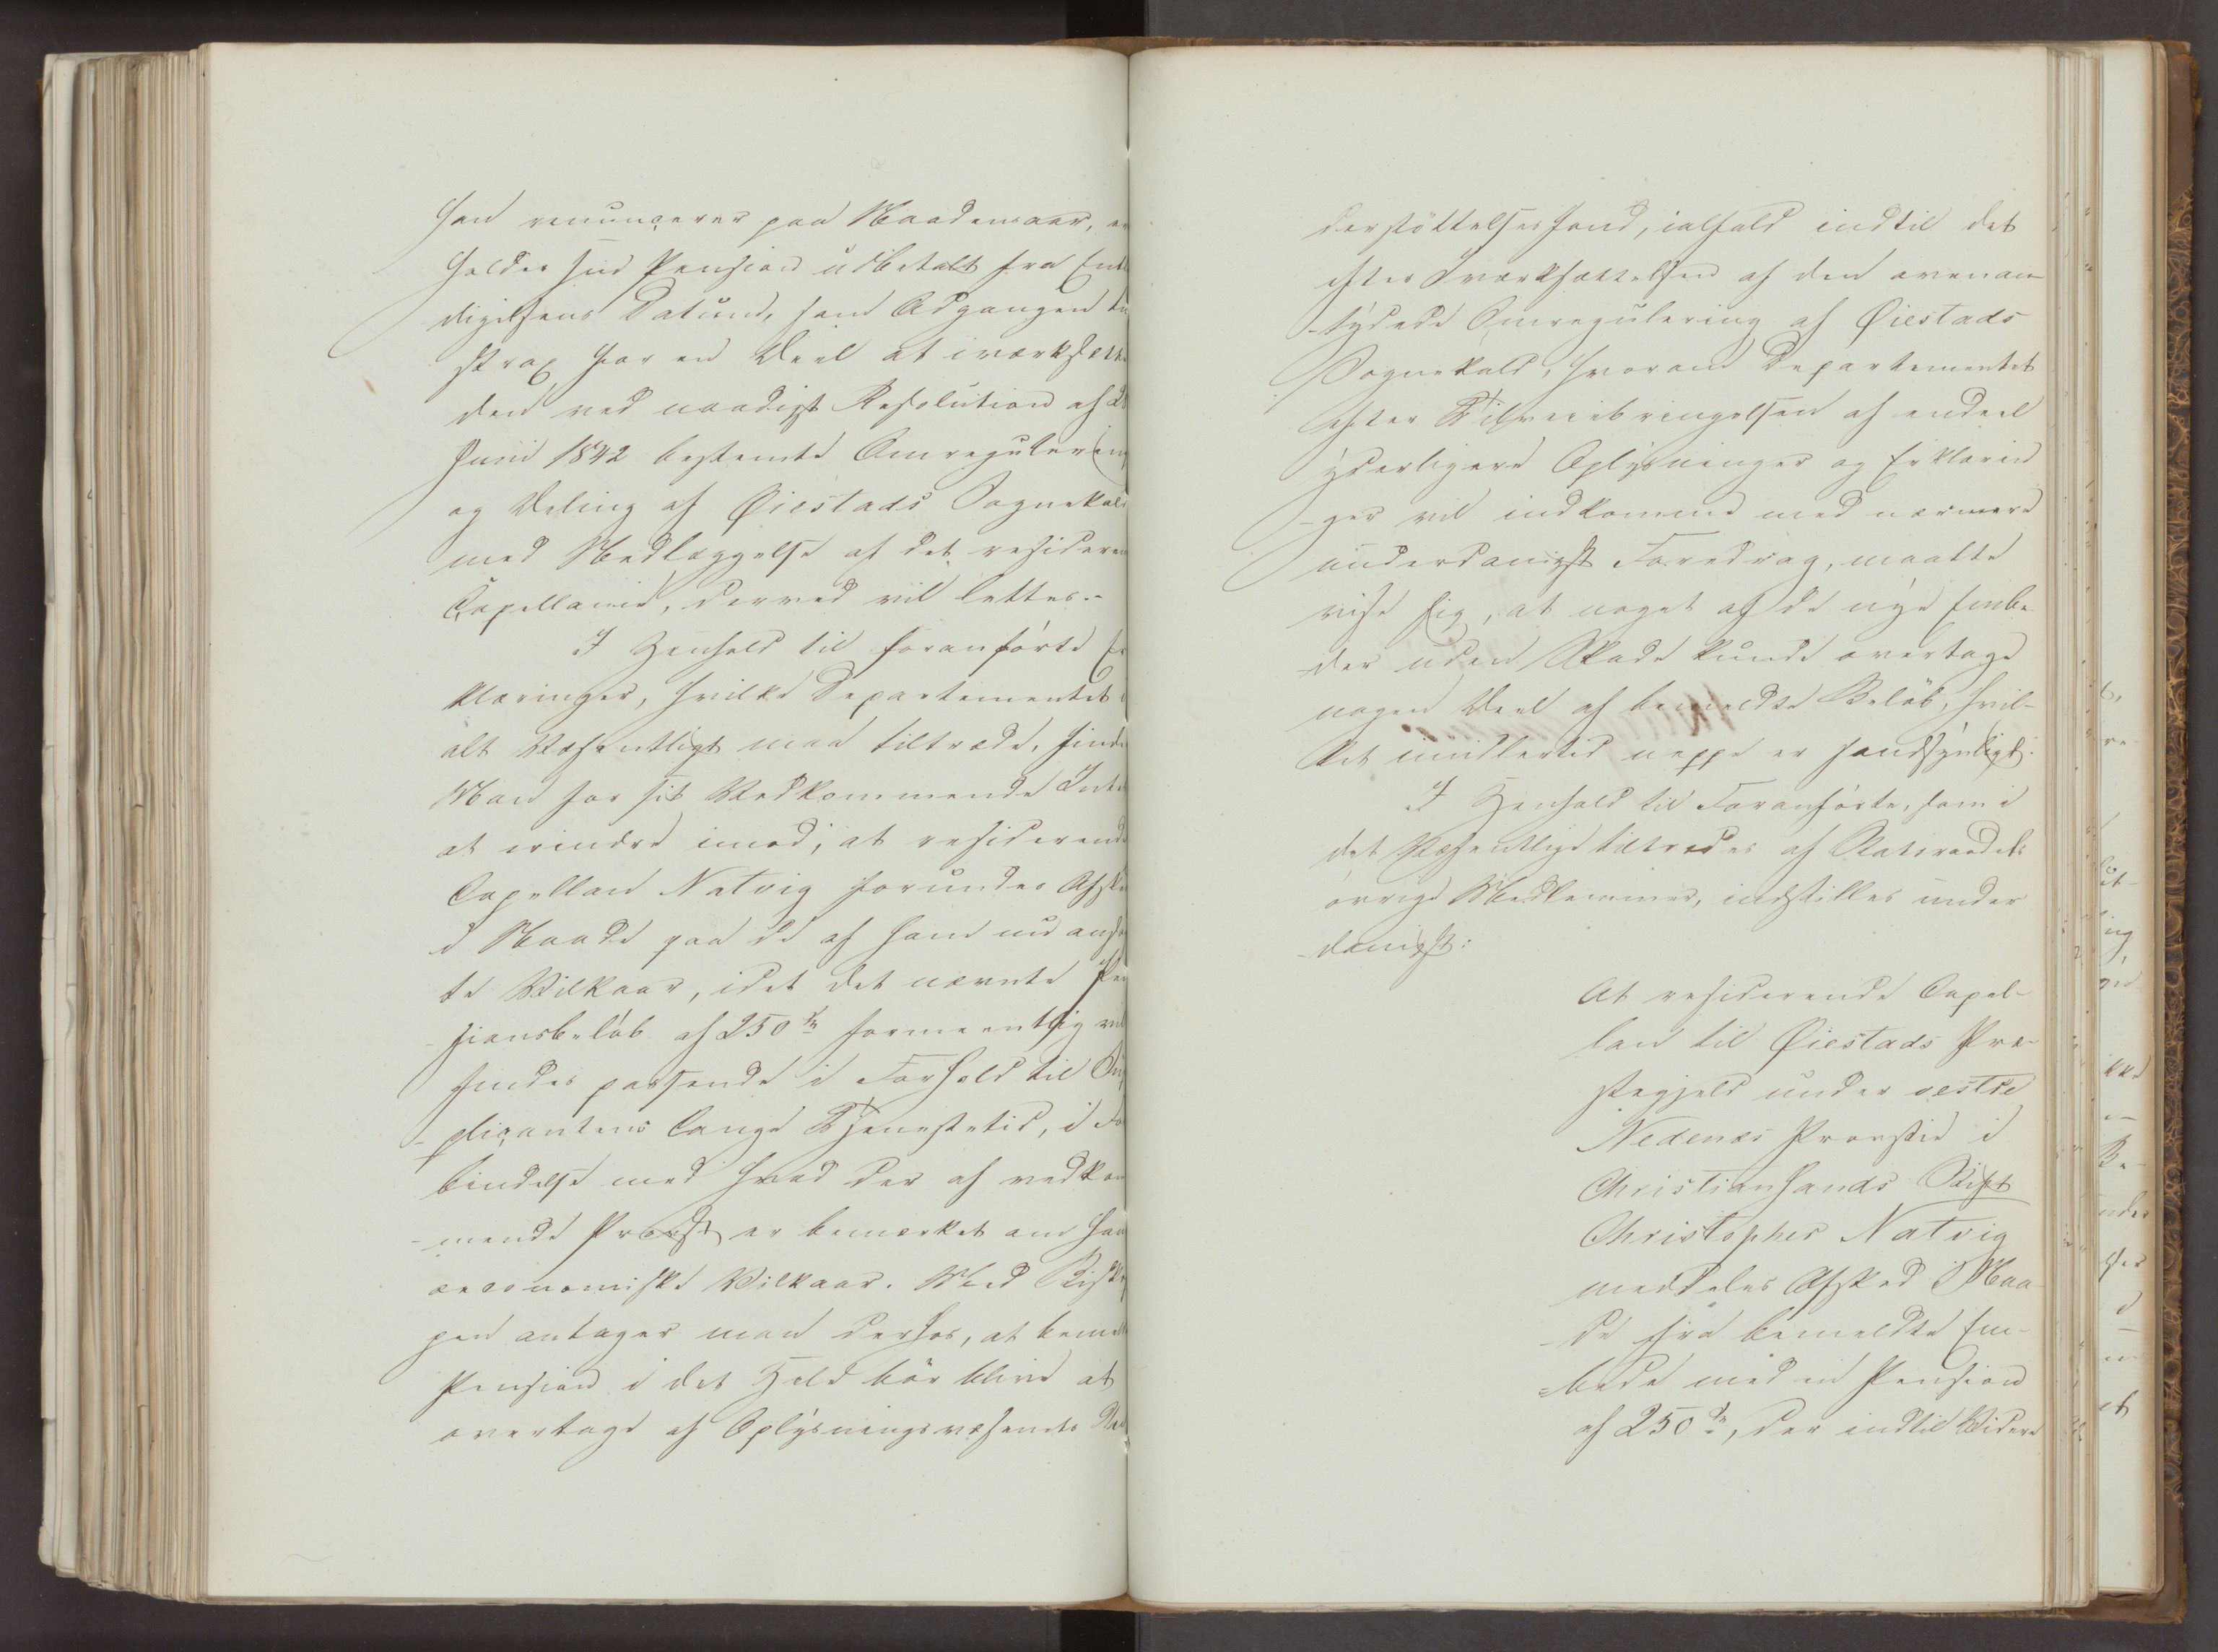 han renuncerer paa Naadensaar, er
holder sin Pension udbetalt fra Entle
digelsens Datum, som Adgangen til
strax for en Deel at iværksætte
den ved naadigst Resolution af 28
Juni 1842 bestemte Omregulering
og Deling af Øiestads Sognekald
med Nedlæggelse af det residerende
Capellanie, derved vil lettes.-
I Henhold til foranførte Er
klæringer, hvilke Departementet i
alt Væsentligt maa tiltræde, finder
Man for sit Vedkommende Intet
at erindre imod, at residerende
Capellan Natvig forundes Afsked
i Naade paa de af ham nu anfør
te Vilkaar, idet det nævnte Pen
-sionsbeløb af 250 Spd formeentlig vil
findes passende i Forhold til Sup
-plicantens lange Tjenestetid, i For
bindelse med hvad der af vedkom
-mende Provst er bemærket om hans
oeconomiske Vilkaar. Med Biskop
pen antager man derhos, at bemeldte
Pension i det Hele bör blive at
overtage af Oplysningsvæsenets Un
derstöttelsesfond, ialfald indtil det
efter Iværksættelsen af den ovenan
-tydede Omregulering af Øiestads
Sognekald, hvorom Departementet
efter Tilveiebringelsen af endeel
yderligere Oplysninger og Erklærin
-ger vil indkomme med nærmere
underdanigst Foredrag, maatte
vise sig, at noget af de nye Embe
der uden Skade kunde overtage
nogen Deel af bemeldte Beløb, hvil-
ket imidlertid neppe er sandsynligt.
I Henhold til Foranførte, som i
det Væsentlige tiltrædes af Statsraadets
øvrige Medlemmer, indstilles under
-danigst:
At residerende Capel-
lan til Øiestads Præ-
stegjeld under vestre
Nedenæs Provstie i
Christiansands Stift
Christopher Natvig
meddeles Afsked i Naa-
-de fra bemeldte Em-
=bede med en Pension
af 250 Spd, der indtil Videre